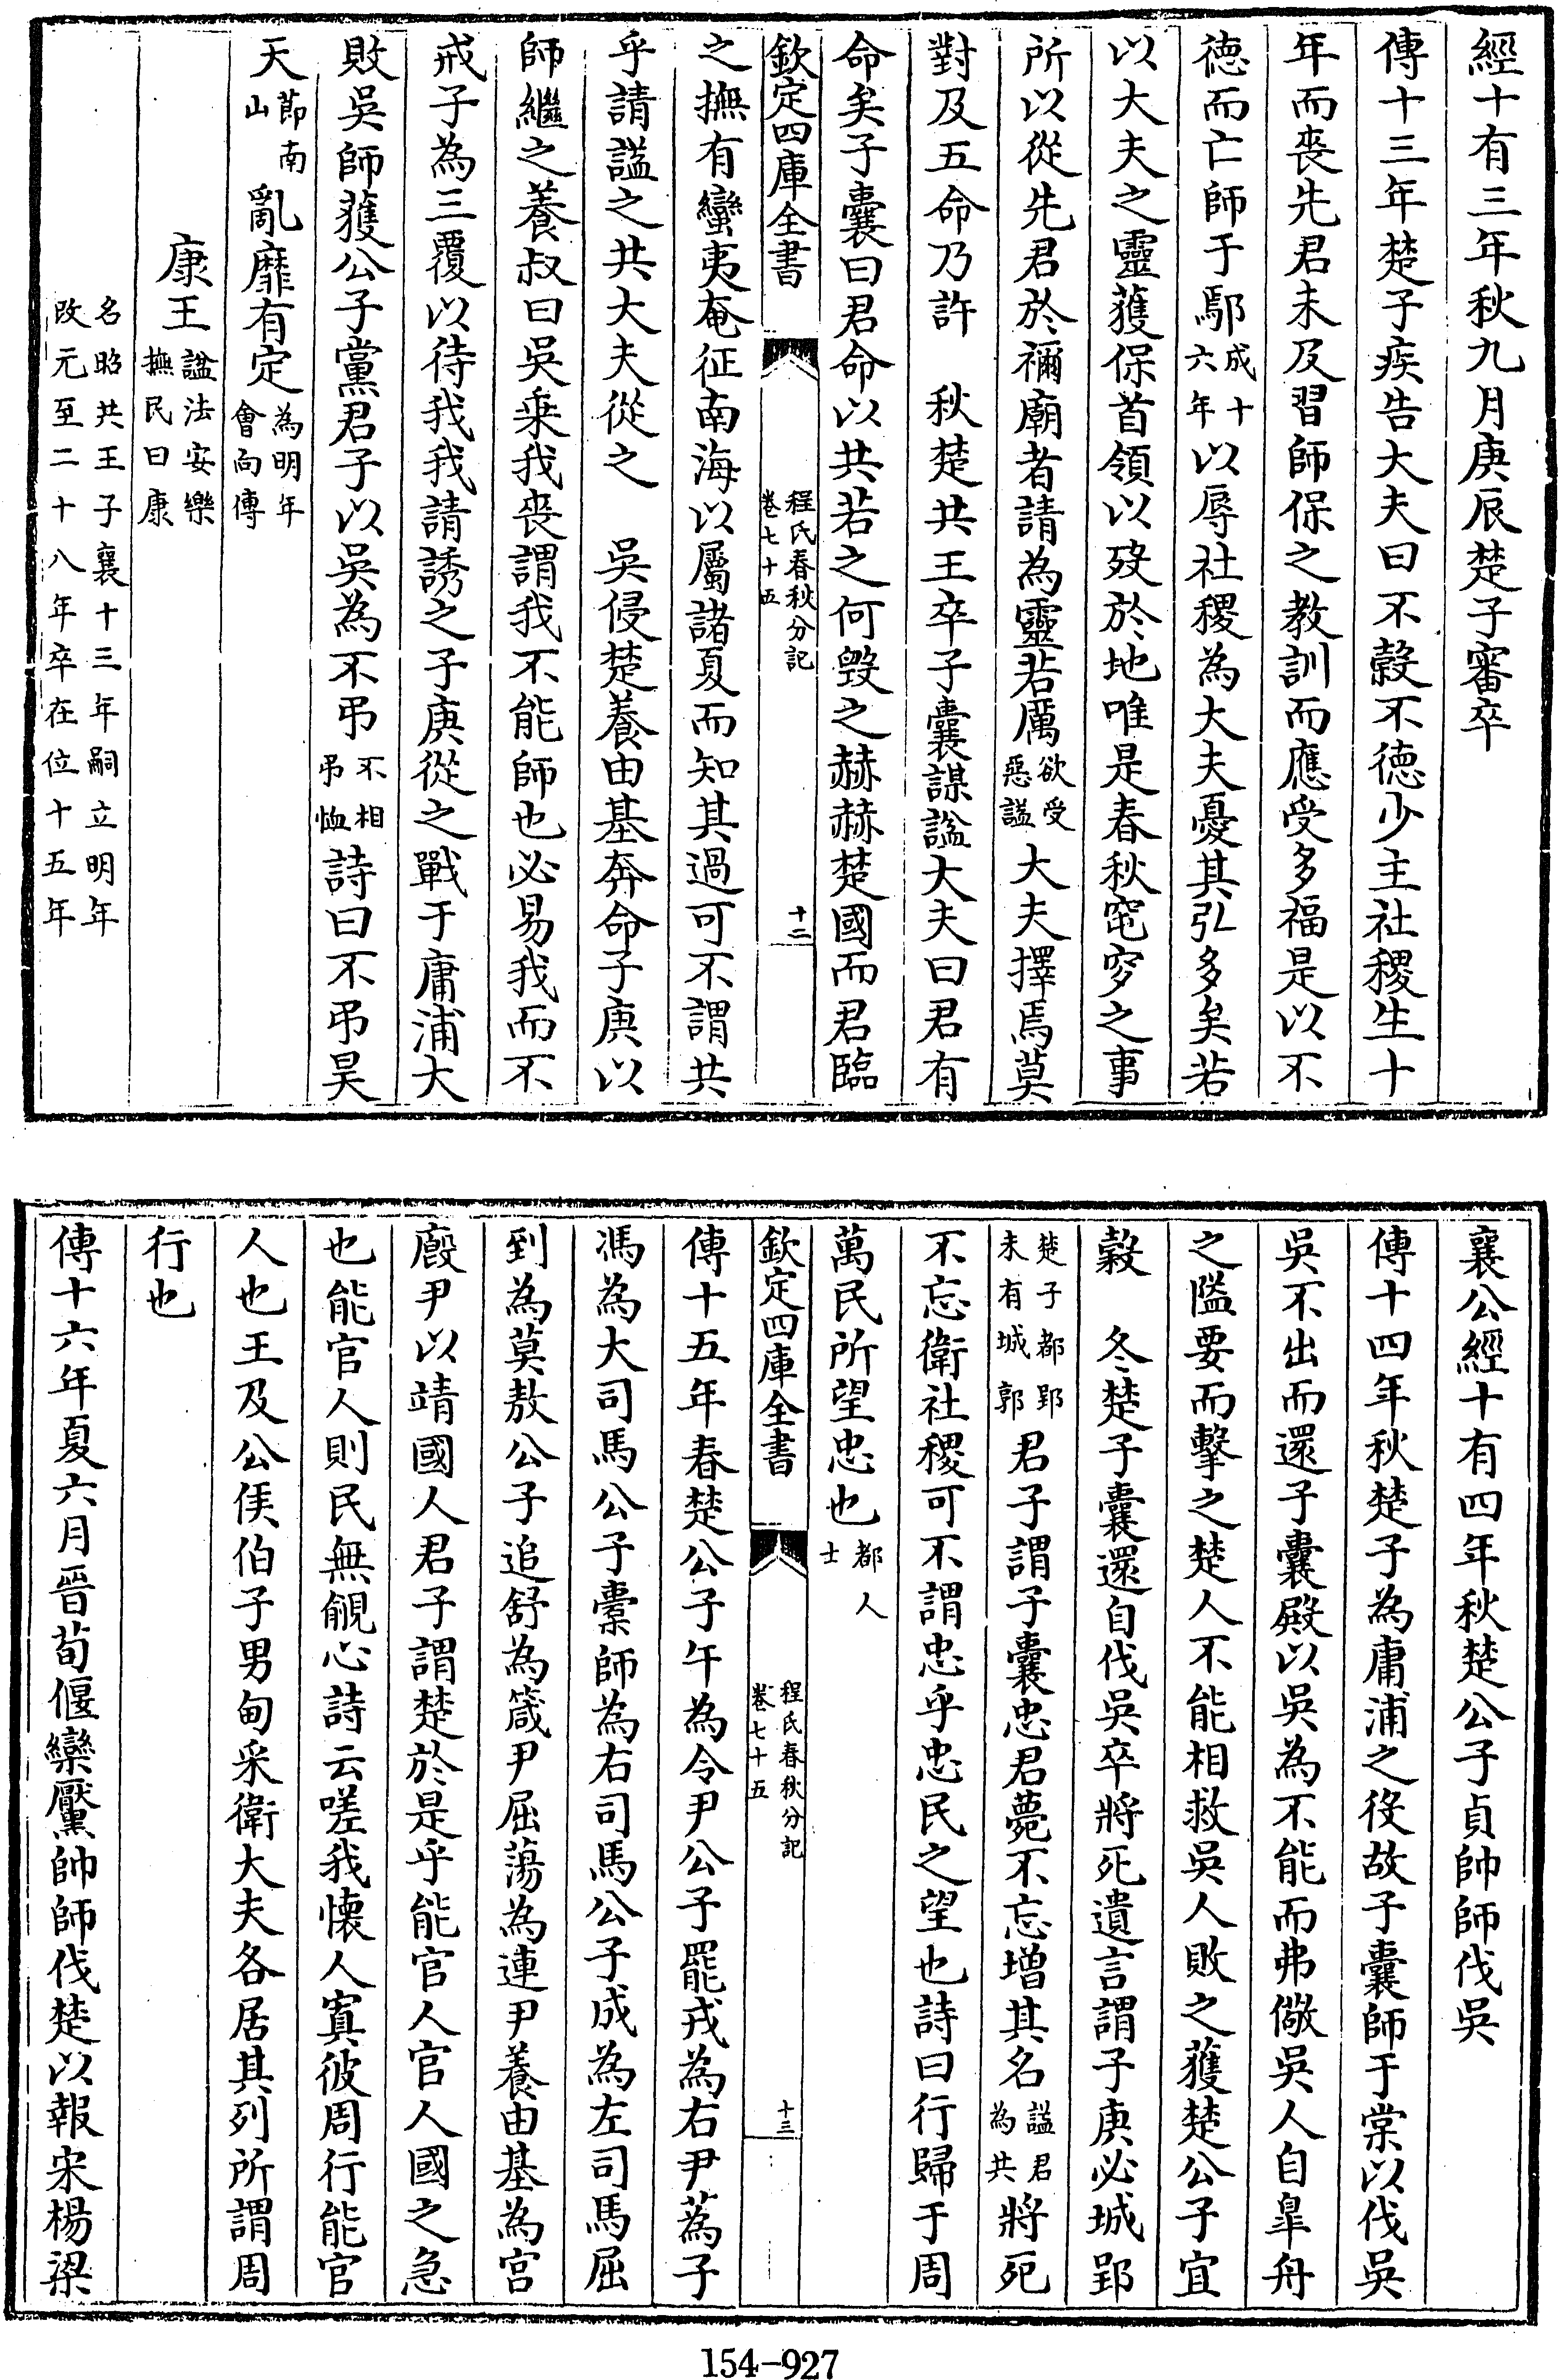 經十有三年秋九月庚辰楚子審卒
傳十三年楚子疾告大夫曰不穀不德少主社稷生十
年而喪先君未及習師保之教訓而應受多福是以不
德而亡師于鄢成十六年以辱社稷為大夫憂其弘多矣若
以大夫之靈獲保首領以歿於地唯是春秋窀穸之事
所以從先君於禰廟者請為靈若厲欲受惡謚大夫擇焉莫
對及五命乃許　秋楚共王卒子囊謀謚大夫曰君有
命矣子囊曰君命以共若之何毀之赫赫楚國而君臨
欽定四庫全書
程氏春秋分記
卷七十五
十二
之撫有蠻夷奄征南海以屬諸夏而知其過可不謂共
乎請謚之共大夫從之　吳侵楚養由基奔命子庚以
師繼之養叔曰吳乗我喪謂我不能師也必易我而不
戒子為三覆以待我我請誘之子庚從之戰于庸浦大
敗吳師獲公子黨君子以吳為不弔不相弔恤詩曰不弔昊
天節南山亂靡有定為明年會向傳
康王謚法安樂撫民曰康
名昭共王子襄十三年嗣立明年
改元至二十八年卒在位十五年
襄公經十有四年秋楚公子貞帥師伐吳
傳十四年秋楚子為庸浦之役故子囊師于棠以伐吳
吳不出而還子囊殿以吳為不能而弗儆吳人自皐舟
之隘要而擊之楚人不能相救吳人敗之獲楚公子宜
穀　冬楚子囊還自伐吳卒將死遺言謂子庚必城郢
楚子都郢未有城郭君子謂子囊忠君薨不忘增其名謚君為共將死
不忘衛社稷可不謂忠乎忠民之望也詩曰行歸于周
萬民所望忠也都人士
欽定四庫全書
程氏春秋分記
卷七十五
十三
傳十五年春楚公子午為令尹公子罷戎為右尹蒍子
馮為大司馬公子橐師為右司馬公子成為左司馬屈
到為莫敖公子追舒為箴尹屈蕩為連尹養由基為宮
廄尹以靖國人君子謂楚於是乎能官人官人國之急
也能官人則民無覦心詩云嗟我懷人寘彼周行能官
人也王及公侯伯子男甸采衛大夫各居其列所謂周
行也
傳十六年夏六月晉荀偃欒黶帥師伐楚以報宋楊梁
154-927